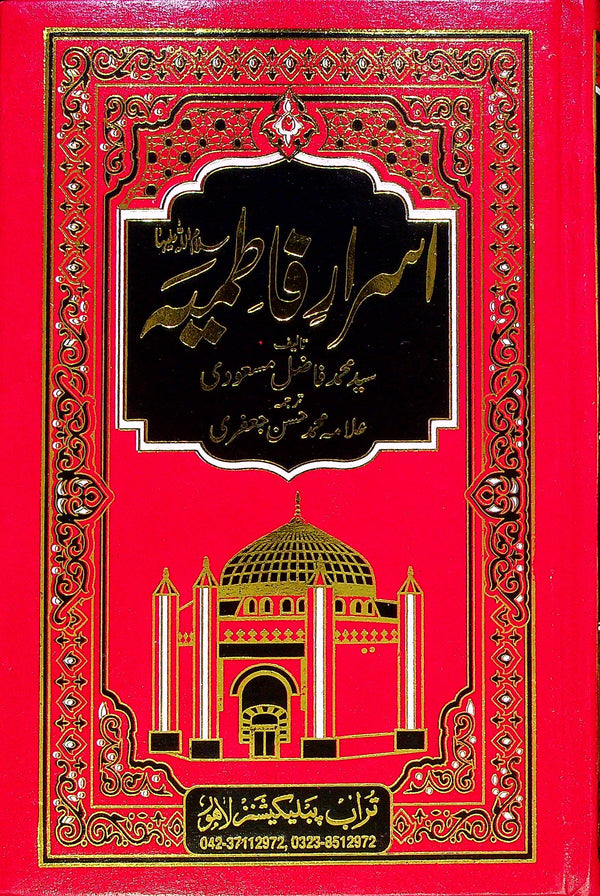 اسرارِ فاطمیہ سلام اللہ علیہا
تالیف
سید محمد فاضل مسعودی
ترجمہ
علامہ محمد حسن جعفری
تراب پبلیکیشنز لاہور
042-37112972, 0323-8512972